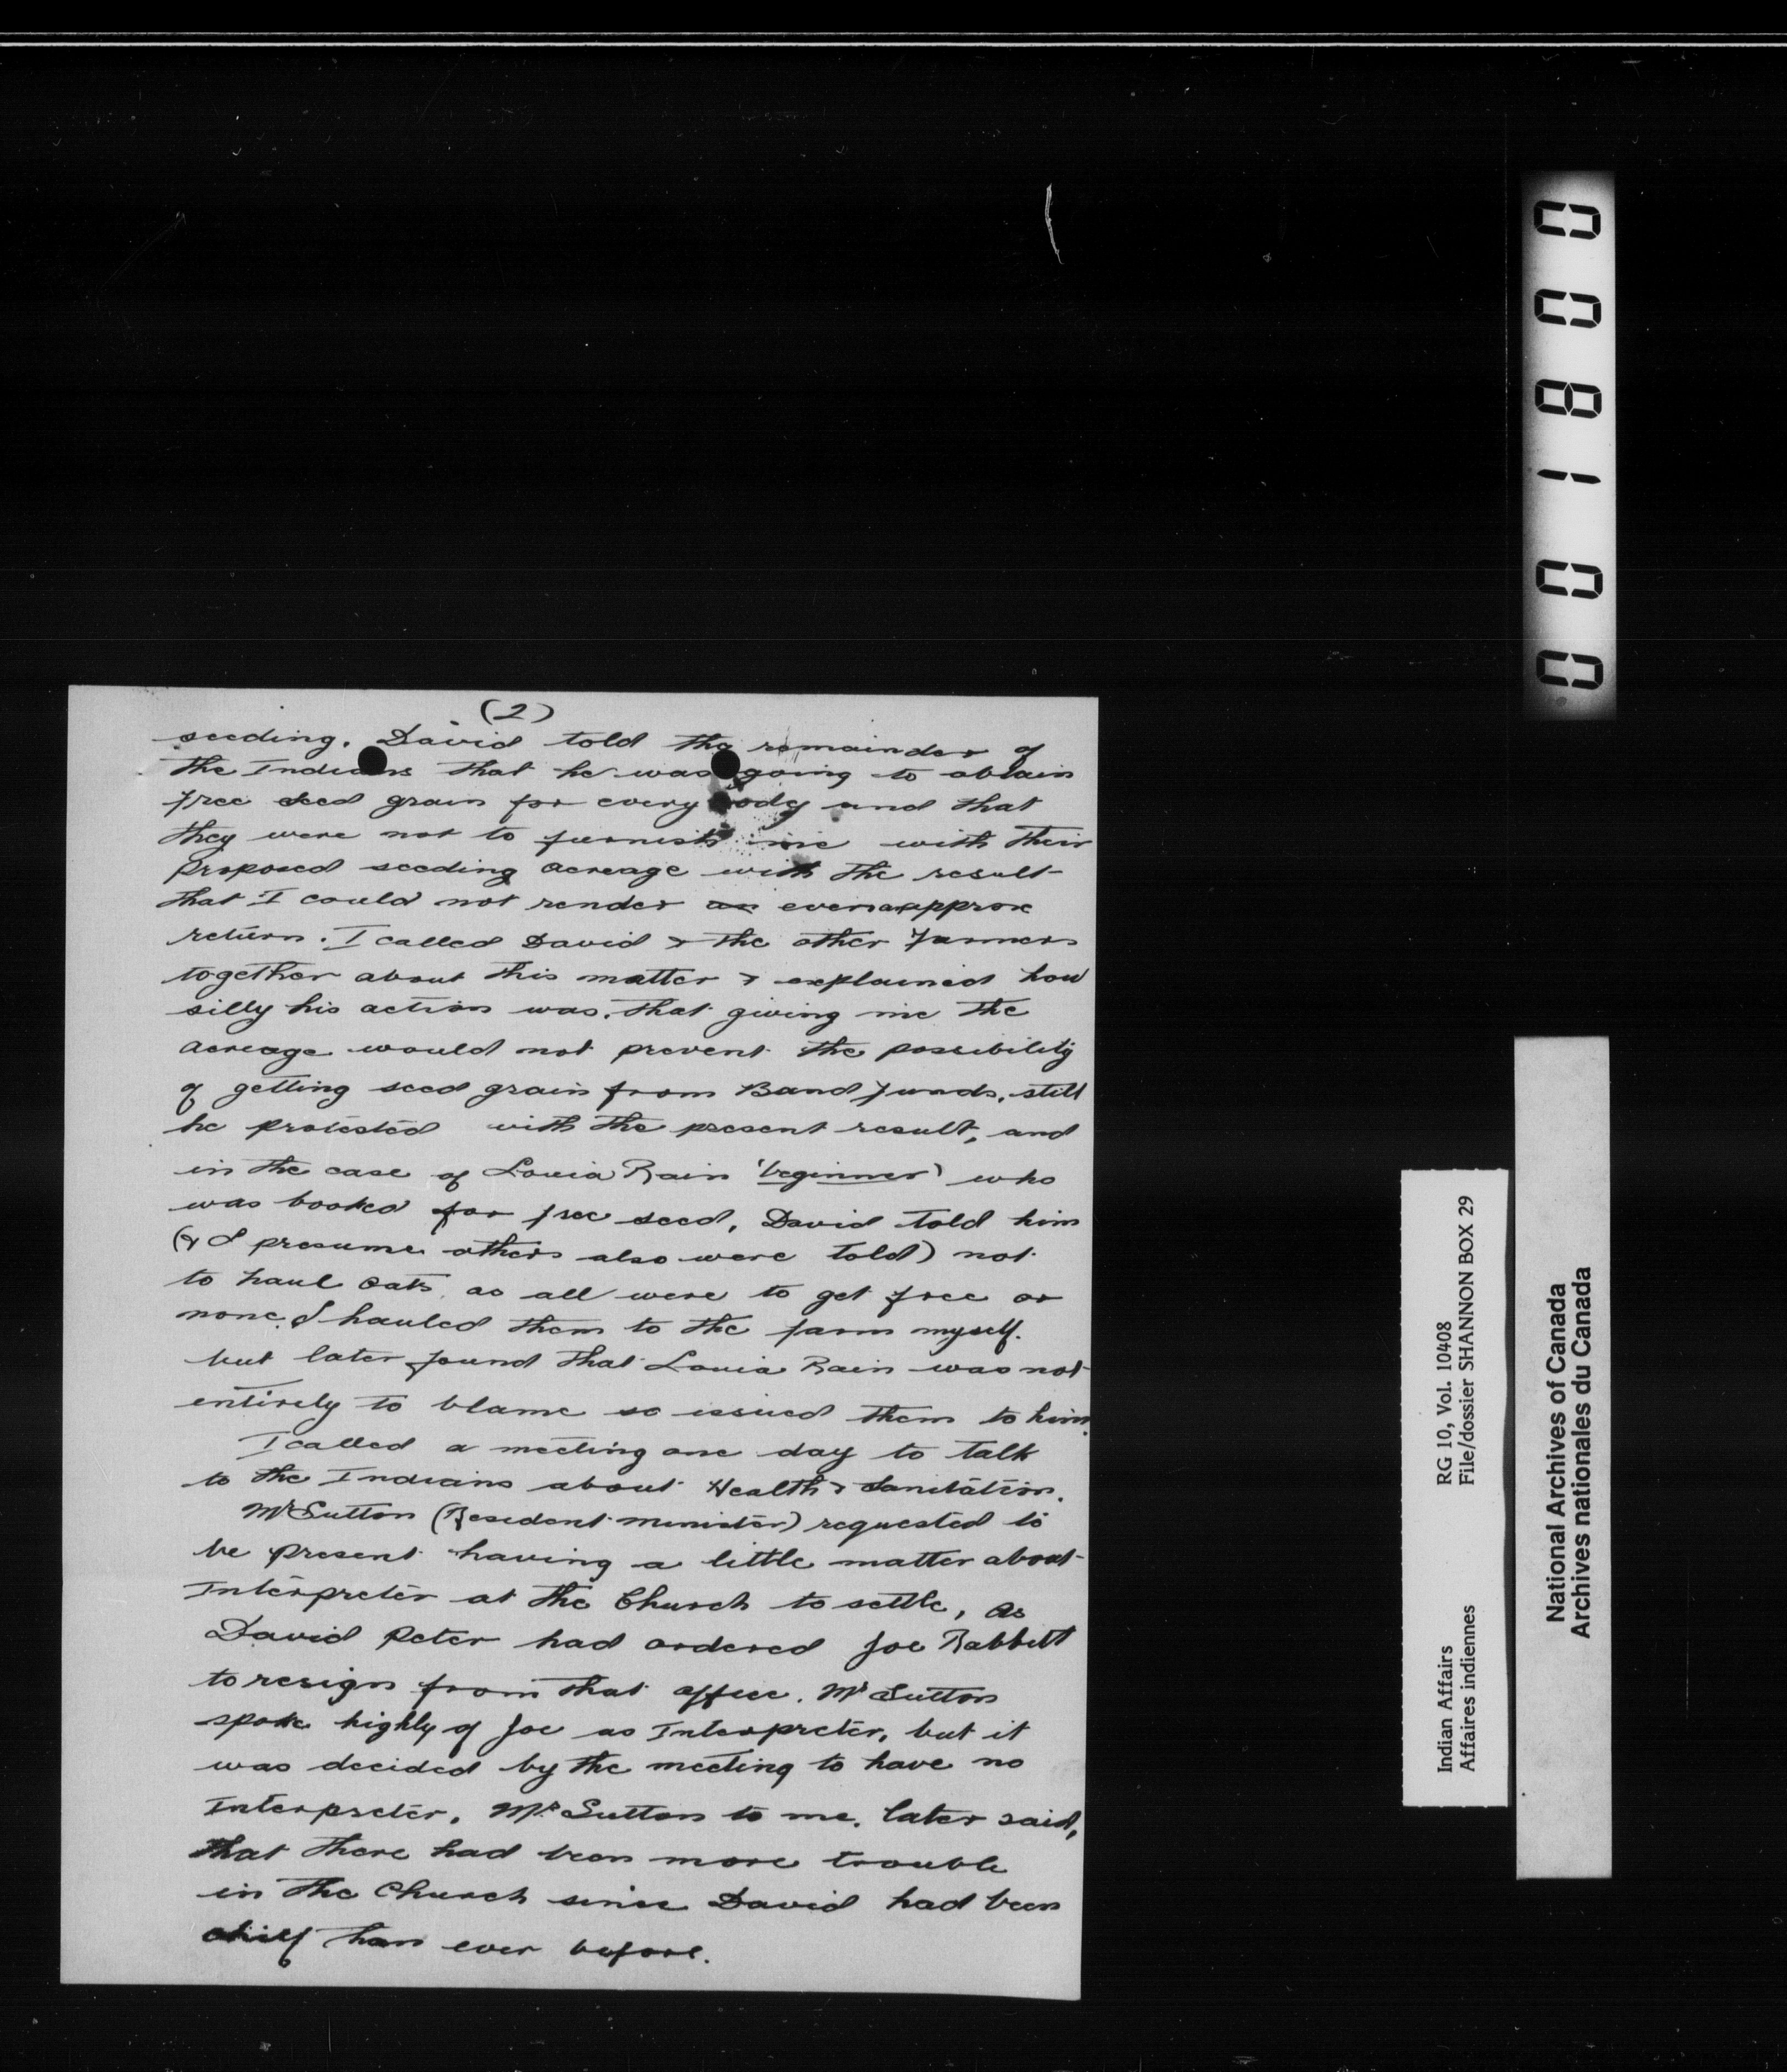 (2)
seeding. David told the remainder of
the Indians that he was going to obtain
free seed grain for everybody and that
they were not to furnish me with their
proposed seeding acreage with the result
that I could not render an even approx
return. I called David & the other Farmers
together about this matter & explained how
silly his action was. That giving me the
acreage would not prevent the possibility
of getting seed grain from Band Funds, still
he protested with the present result, and
in the case of Louia Rain 'beginner' who
was booked for free seed, David told him
(& I presume others also were told) not
to haul oats, as all were to get free or
none. I hauled them to the farm myself.
but later found that Louia Rain was not
entirely to blame so issued them to him.
I called a meeting one day to talk
to the Indians about Health & Sanitation.
Mr Sutton (Resident minister) requested to
be present having a little matter about
Interpreter at the Church to settle, as
David Peter had ordered Joe Rabbitt
to resign from that office. Mr Sutton
spoke highly of Joe as Interpreter, but it
was decided by the meeting to have no
Interpreter. Mr. Sutton to me, later said,
that there had been more trouble
in the Church since David had been
chief than ever before.
001800
Indian Affairs RG 10, Vol. 10408
Affaires indiennes File/dossier SHANNON BOX 29
National Archives of Canada
Archives nationales du Canada